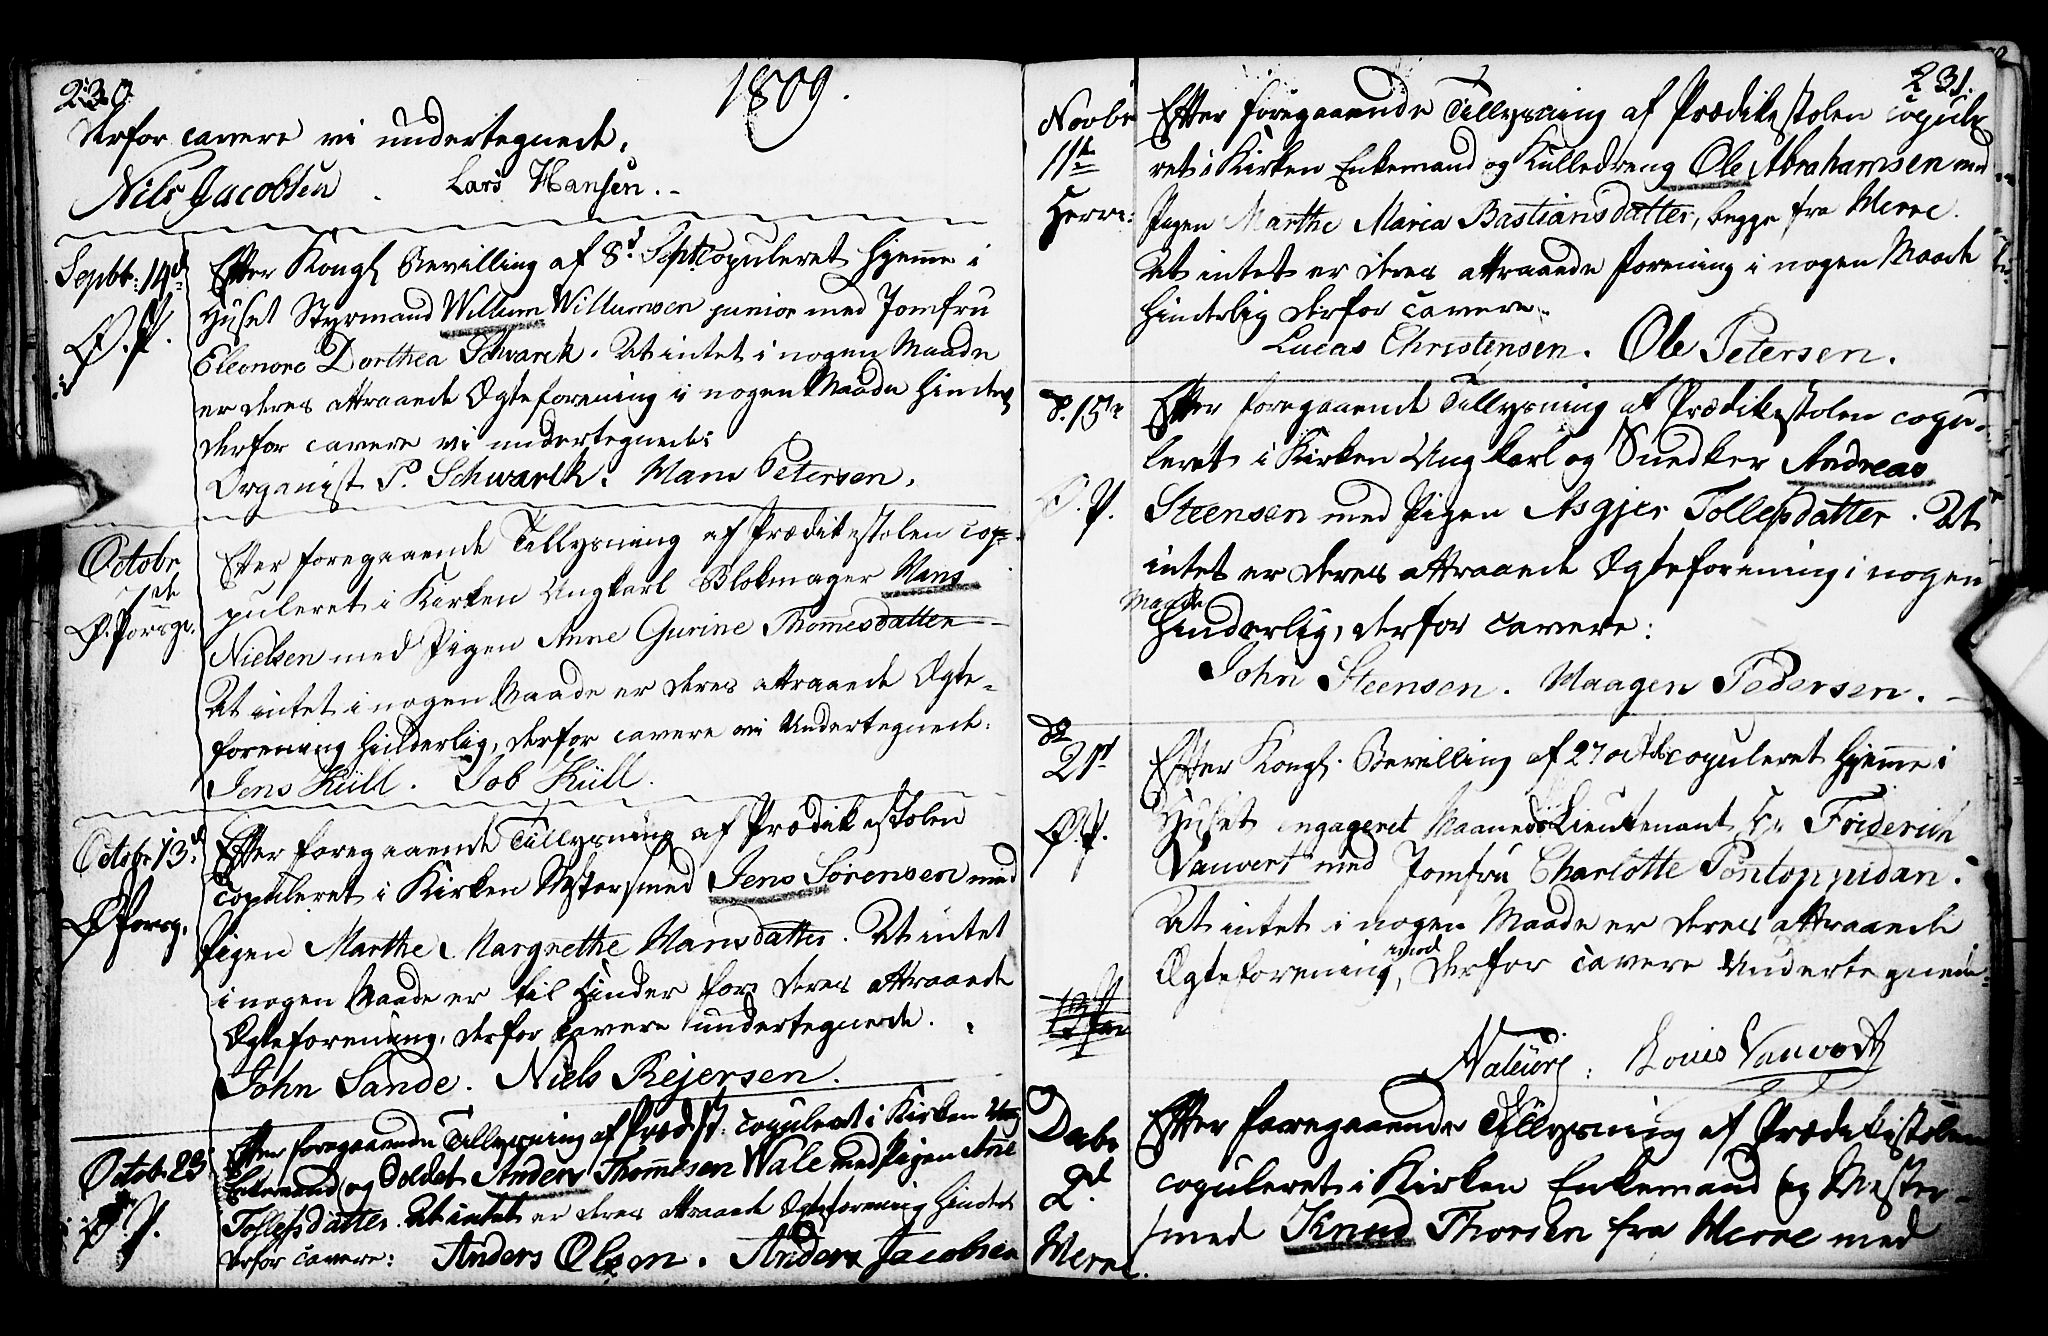 230
1809.
derfor cavere vi undertegnede.
Nils Jacobsen. Lars Hansen.
Septbr: 14d
Ø. P.
Efter Kongl. Bevilling af 8d Sept. copuleret hjemme i
Huset Styrmand Willum Willumsen junior med Jomfru
Eleonore Dorthea Schwarck. At intet i nogen Maade
er deres attraaede Ægteforening i nogen Maade hinderl.
derfor cavere vi undertegnede:
Organist P. Schwarck. Hans Petersen.
Octobr.
7de
Ø. Porsgr.
Efter foregaaende Tillysning af Prædikestolen co-
puleret i Kirken Ungkarl Blokmager Hans
Nielsen med Pigen Anne Gurine Thommesdatter
At intet i nogen Maade er deres attraaede Ægte-
forening hinderlig, derfor cavere vi Undertegnede:
Jens Küll. Job Küll.
Octobr 13d
Ø Porsg.
Efter foregaaende Tillysning af Prædikestolen
copuleret i Kirken Mestersmed Jens Sørensen med
Pigen Marthe Margrethe Hansdatter. At intet
i nogen Maade er til Hinder for deres attraaede
Ægteforening, derfor cavere undertegnede.
John Sande. Niels Rejersen.
Octob: 23
Ø P.
Efter foregaaende Tillysning af Præd:st: copuleret i Kirken
Enkemand og Soldat Anders Thommesen Wale med Pigen Anne
Tollefsdatter. At intet er deres attraaede Ægteforening hinderl
derfor cavere: Anders Olsen. Anders Jacobsen
231.
Novbr
11te
Herre:
Efter foregaaende Tillysning af Prædikestolen copule
ret i Kirken Enkemand og Kulledreng Ole Abrahamsen med
Pigen Marthe Maria Bastiansdatter, begge fra Herre.
At intet er deres attraaede forening i nogen Maade
hinderlig derfor cavere.
Lucas Christensen. Ole Petersen.
d. 15de
Ø. P.
Efter foregaaende Tillysning af Prædikestolen copu-
leret i Kirken Ungkarl og Snedker Andreas
Steensen med Pigen Asgjer Tollefsdatter. At
intet er deres attraaede Ægteforening i nogen
Maade
hinderlig, derfor cavere:
John Steensen. Haagen Pedersen.
d
21d
Ø. P.
Efter Kongl. Bevilling af 27 octobr copuleret hjemme i
Huset engageret Maaneds Lieutenant Hr Friderich
Vauvert med Jomfru Charlotte Pontoppidan.
At intet i nogen Maade er deres attraaede
Ægteforening imod, derfor cavere Undertegnede
Louis Vauvert
Decbr
2d
Herre.
Efter foregaaende Tillysning af Prædikestolen
copuleret i Kirken Enkemand og Mester-
smed Knud Thorsen fra Herre med